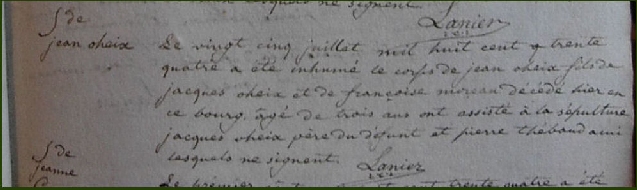 lesquels ne signent
Lanier
S de
jean oheix
Le vingt cinq juillet mil huit cent q trente
quatre a été inhumé le corps de jean oheix fils de
jacques oheix et de françoise moreau décédé hier en
ce bourg, agé de trois ans ont assisté à la sépulture
jacques oheix père du défunt et pierre thebaud ami
lesquels ne signent.
Lanier
S de
jeanne
Le premier trente quatre a été